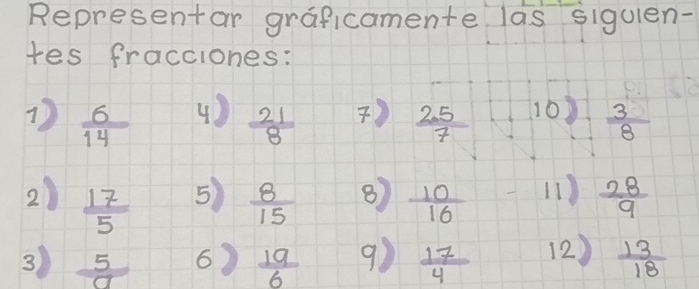 Representar gráficamente las siguien-
tes fracciones:
1) 6/14 4) 21/8 7) 25/7 10) 3/8
2) 17/5 5) 8/15 8) 10/16 11) 28/9
3) 5/9 6) 19/6 9) 17/4 12) 13/18